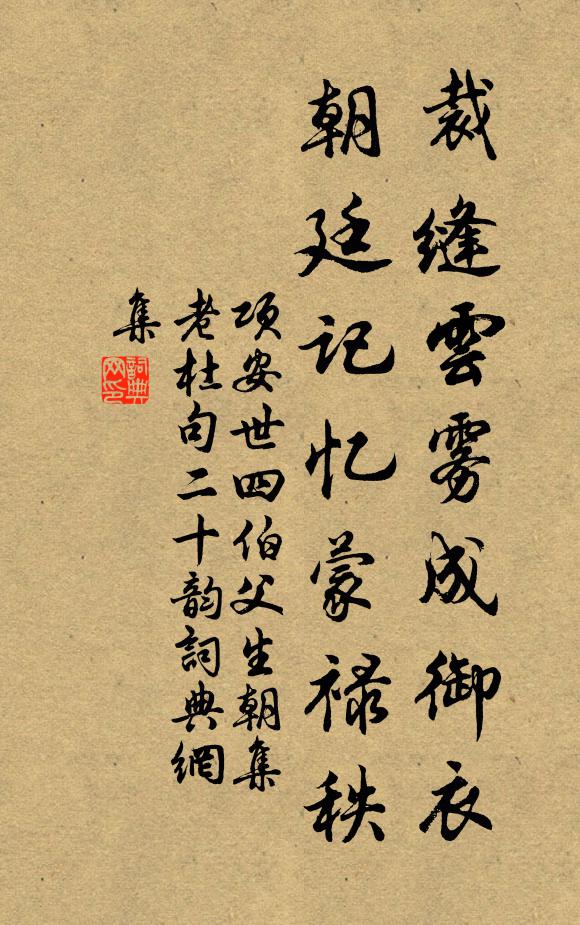 裁缝雲雾成御衣
朝廷记忆蒙禄秩
项安世四伯父生朝集
老杜句二十韵詞典網
集
詞典
网印